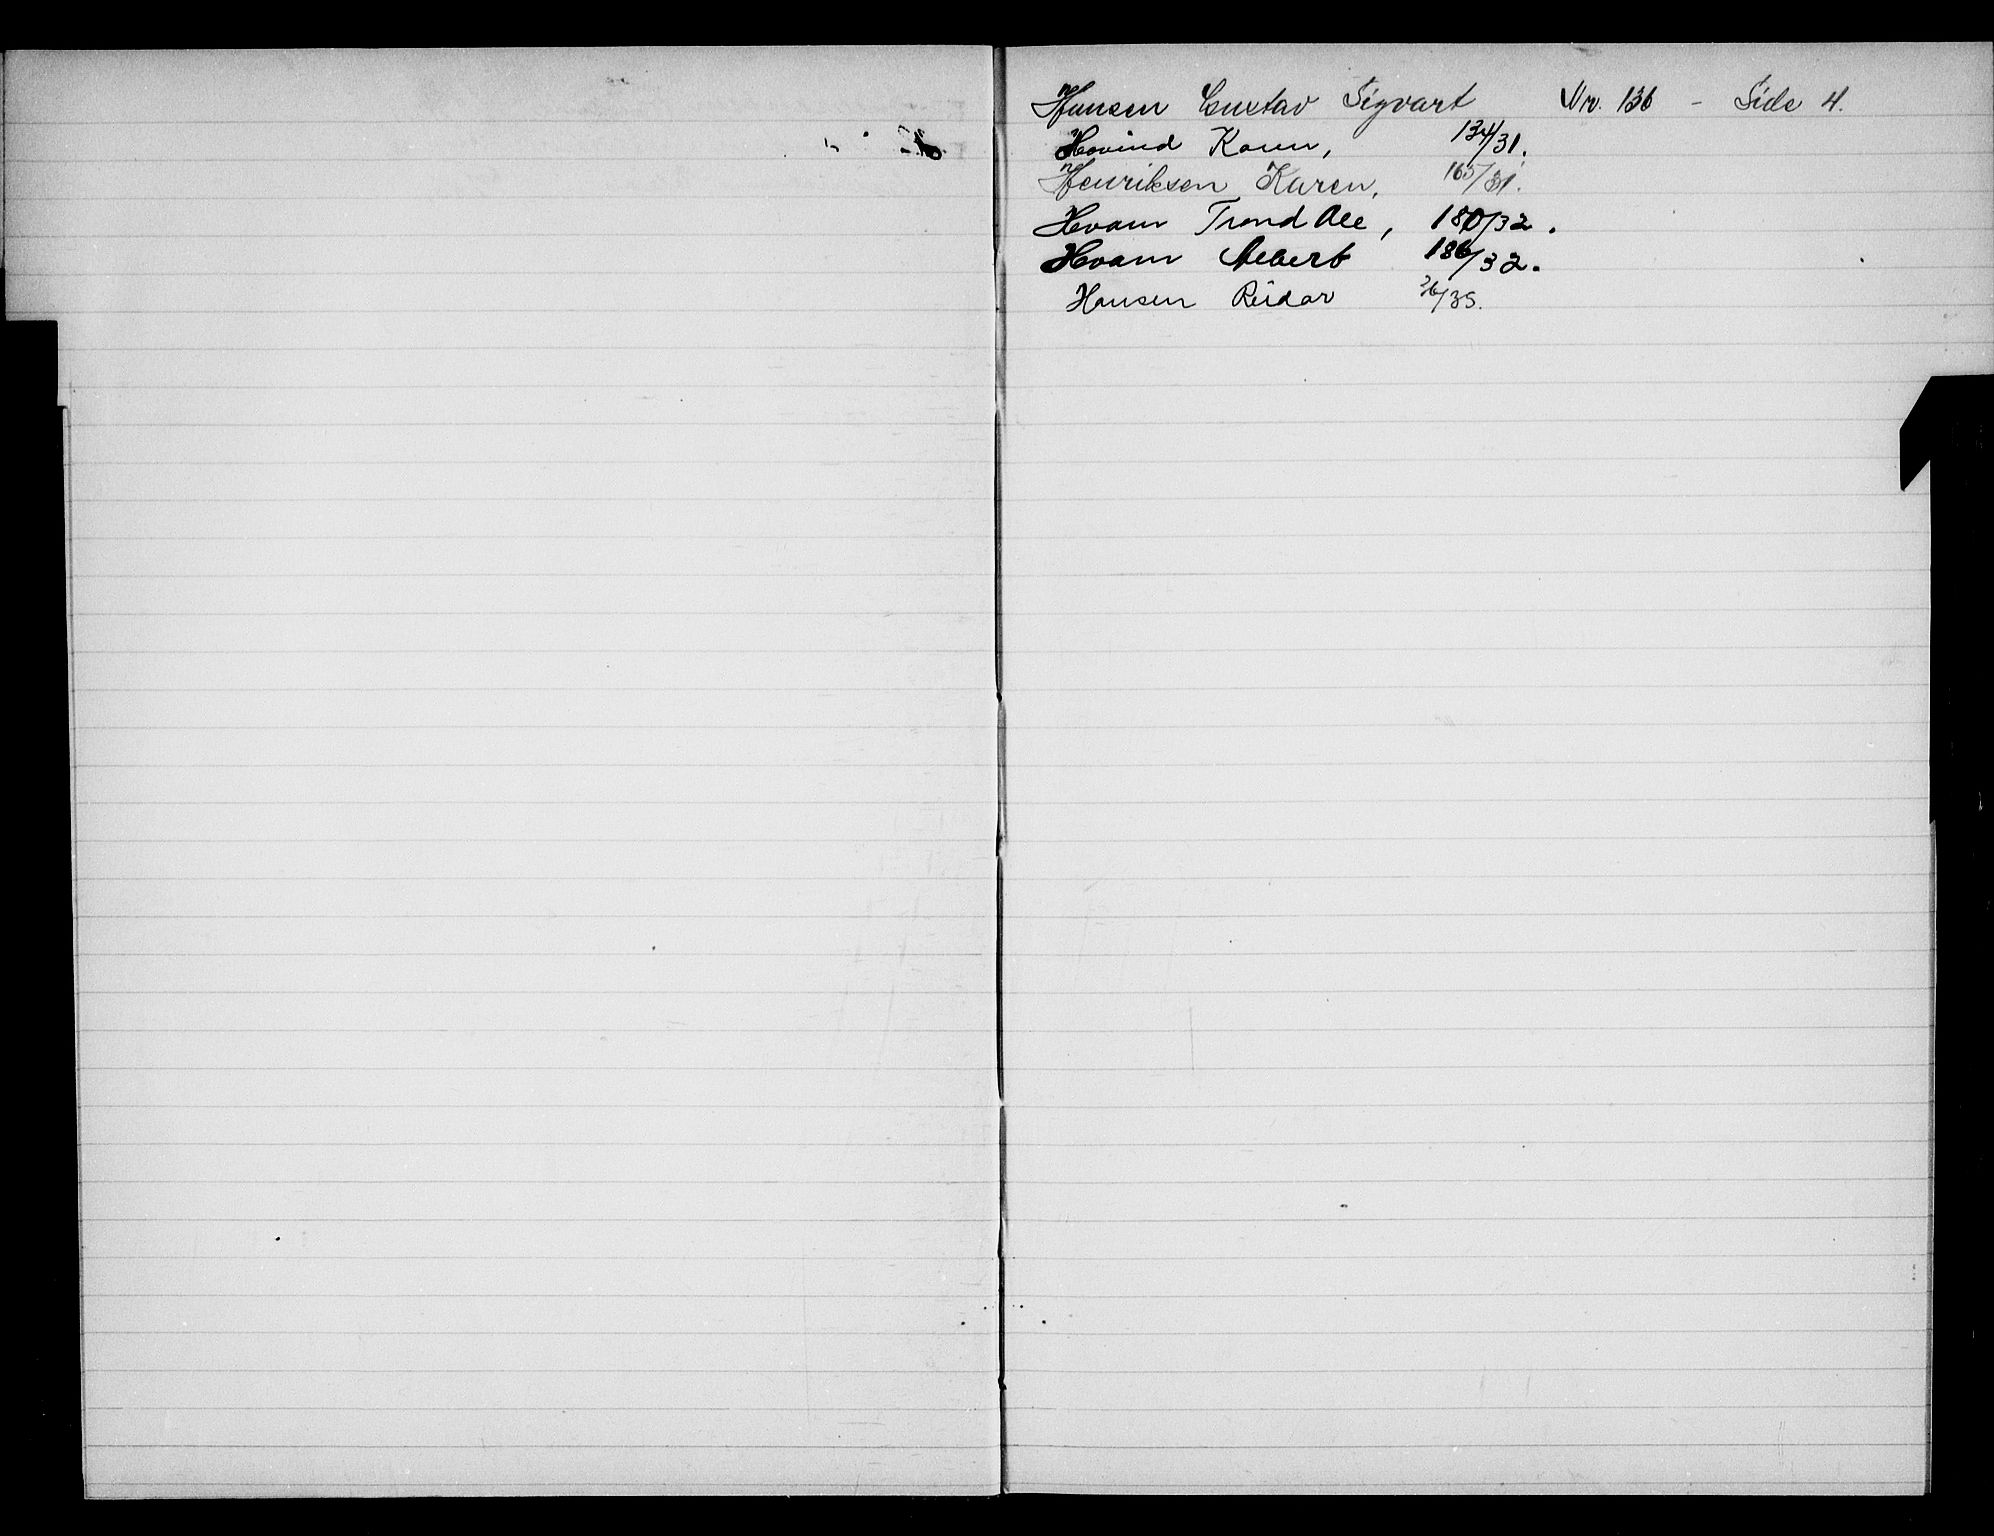 Hansen Gustav Sigvart Nr. 136 - Side 4.
Hovind Karen, 134/31.
Henriksen Karen, 165/31.
Hvam Trond Ole, 180/32.
Hvam Albert 186/32.
Hansen Reidar /35.